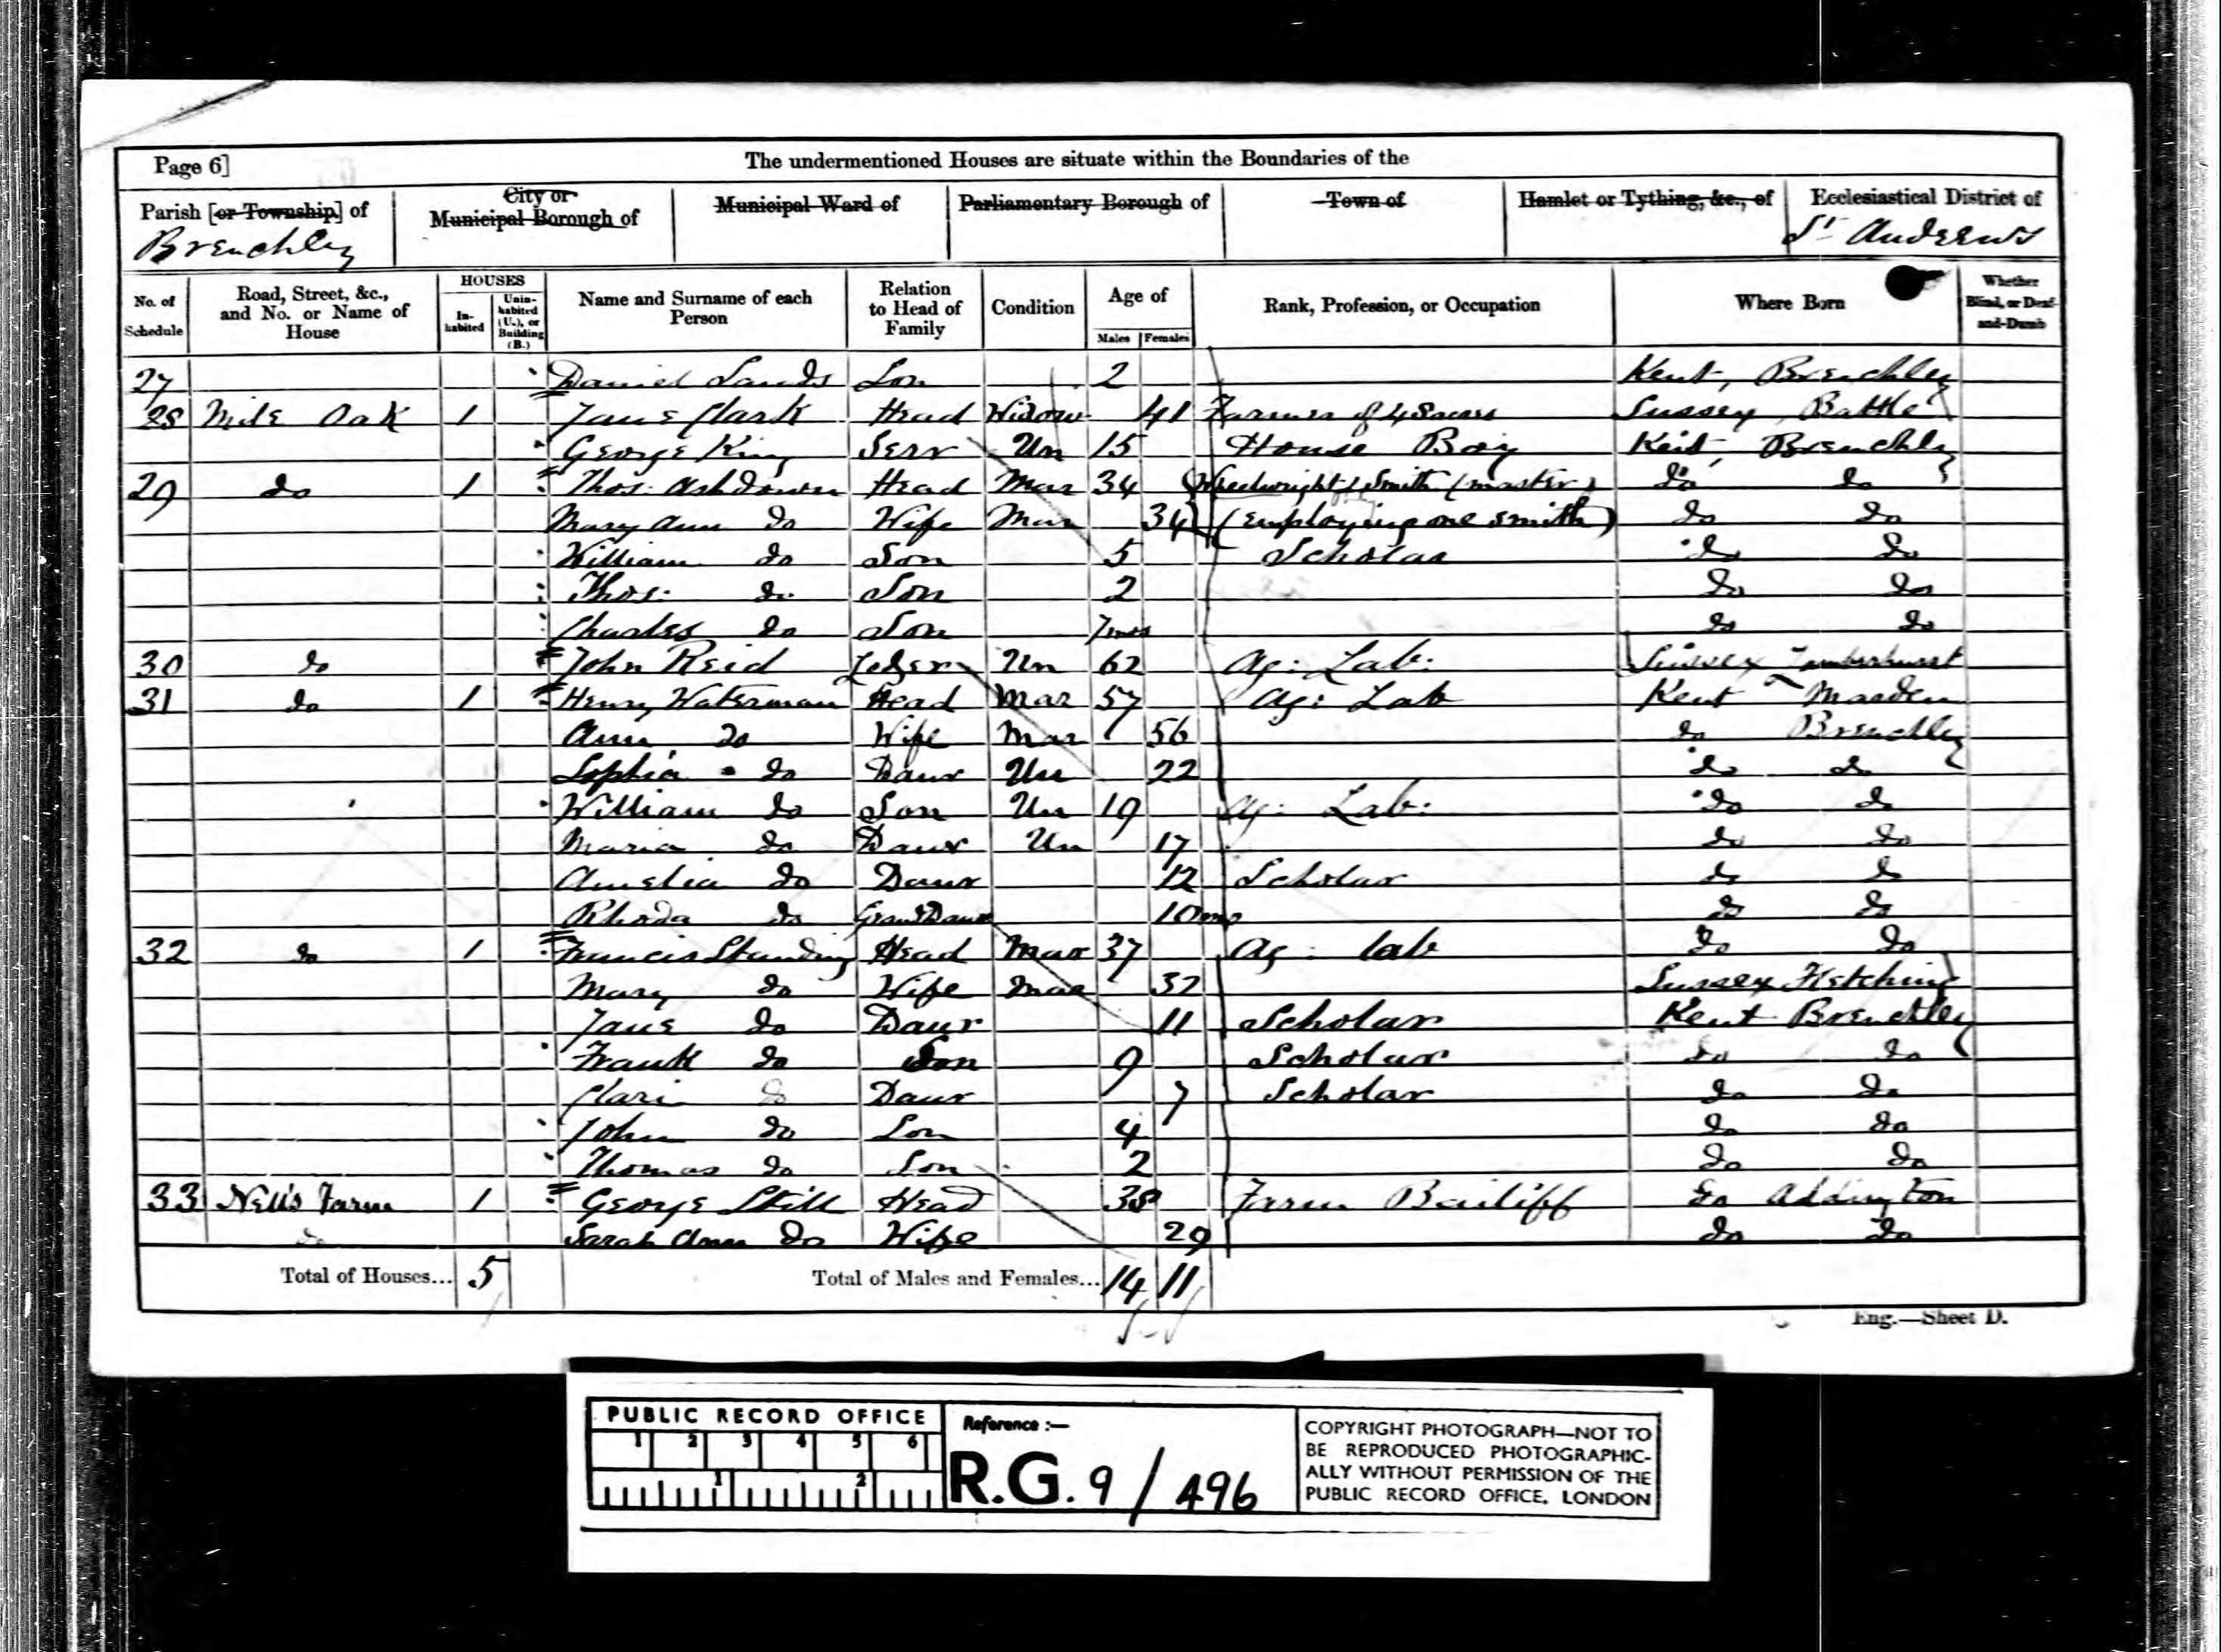 Page 6]
The undermentioned Houses are situate within the Boundaries of the
Parish [or Township] of Brenchley
City or Municipal Borough of
Municipal Ward of
Parliamentary Borough of
Town of
Hamlet or Tything, &c., of
Ecclesiastical District of St Andrews
No. of Schedule
Road, Street, &c., and No. or Name of House
HOUSES
In-habited
Unin-habited (U.), or Building (B.)
Name and Surname of each Person
Relation to Head of Family
Condition
Age of
Males Females
Rank, Profession, or Occupation
Where Born
Whether Blind, or Deaf-and-Dumb
27 Daniel Sands Son 2 Kent, Brenchley
28 Mile Oak 1 Jane Clark Head Widow 41 Farmer of 48 acres Sussex Battle
George King Serv Un 15 House Boy Kent, Brenchley
29 do 1 Thos. Ashdown Head Mar 34 Wheelwright & Smith (master) do do
Mary Ann do Wife Mar 34 (employing one smith) do do
William do Son 5 Scholar do do
Thos. do Son 2 do do
Charles do Son 7mos do do
30 do John Reid Lodger Un 62 Ag: Lab: Sussex Lamberhurst
31 do 1 Henry Waterman Head Mar 57 Ag: Lab Kent Marden
Ann do Wife Mar 56 do Brenchley
Sophia do Daur Un 22 do do
William do Son Un 19 Ag: Lab: do do
Maria do Daur Un 17 do do
Amelia do Daur 12 Scholar do do
Rhoda do GrandDaur 10mo do do
32 do 1 Francis Standing Head Mar 37 Ag: lab do do
Mary do Wife Mar 32 Sussex Fletching
Jane do Daur 11 Scholar Kent Brenchley
Frank do Son 9 Scholar do do
Clari do Daur 7 Scholar do do
John do Son 4 do do
Thomas do Son 2 do do
33 Nell's Farm 1 George Skill Head 38 Farm Bailiff do Addington
do Sarah Ann do Wife 29 do do
Total of Houses... 5
Total of Males and Females... 14 11
Eng.—Sheet D.
PUBLIC RECORD OFFICE
1 2 3 4 5 6
1 2
Reference :—
R.G. 9 / 496
COPYRIGHT PHOTOGRAPH—NOT TO
BE REPRODUCED PHOTOGRAPHIC-
ALLY WITHOUT PERMISSION OF THE
PUBLIC RECORD OFFICE, LONDON